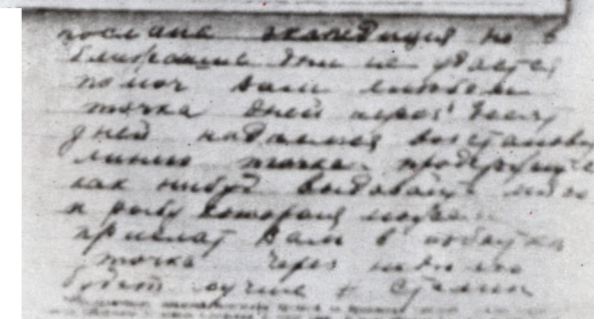 послана экспедиция но в
ближаише дни не удается
помоч вам хлебом
точка дней через десят
дней надаемся востанов
линию точка продержите
как нибуд выдавайте мясо
и рыбу которая можем
прислат вам в избытке
точка через неделю
будет лучше + Сталин